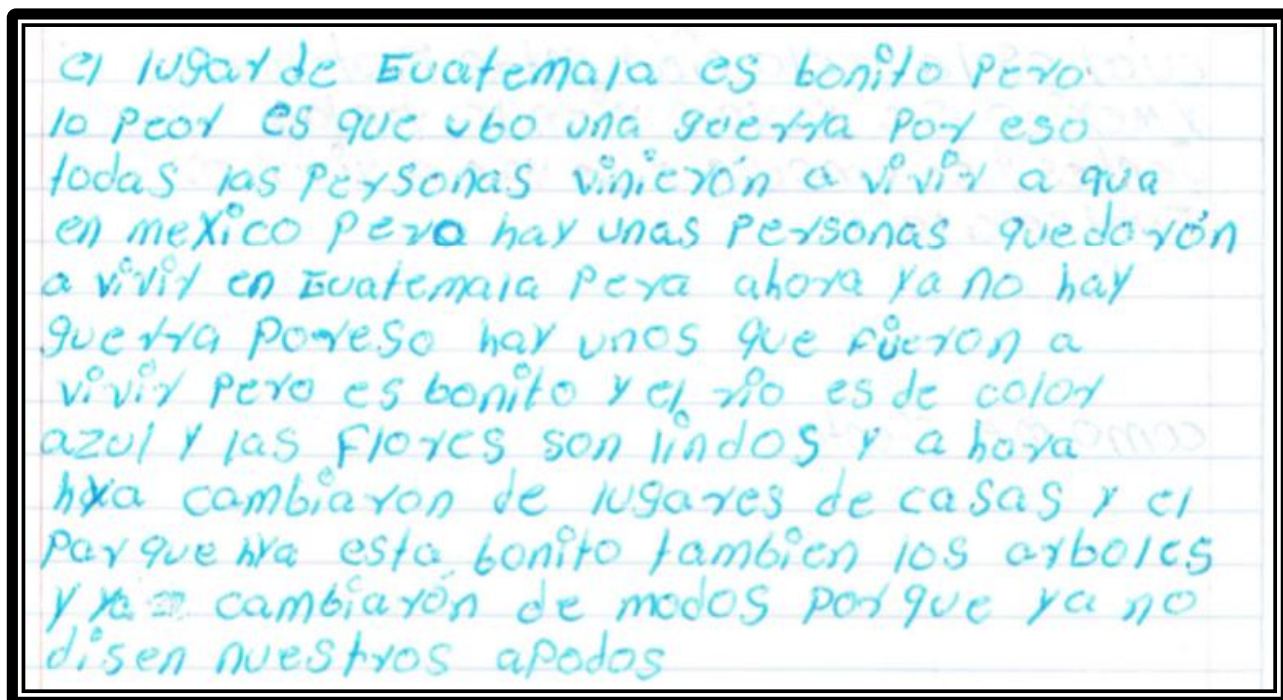 el lugar de Guatemala es bonito pero
lo peor es que ubo una guerra por eso
todas las personas vinierón a vivir a qua
en mexico pero hay unas personas quedarón
a vivir en Guatemala pera ahora ya no hay
guerra poreso hay unos que fueron a
vivir pero es bonito y el rio es de color
azul y las flores son lindos y a hora
hya cambiaron de lugares de casas y el
parque hya esta bonito tambien los arboles
y ya cambiarón de modos porque ya no
disen nuestros apodos